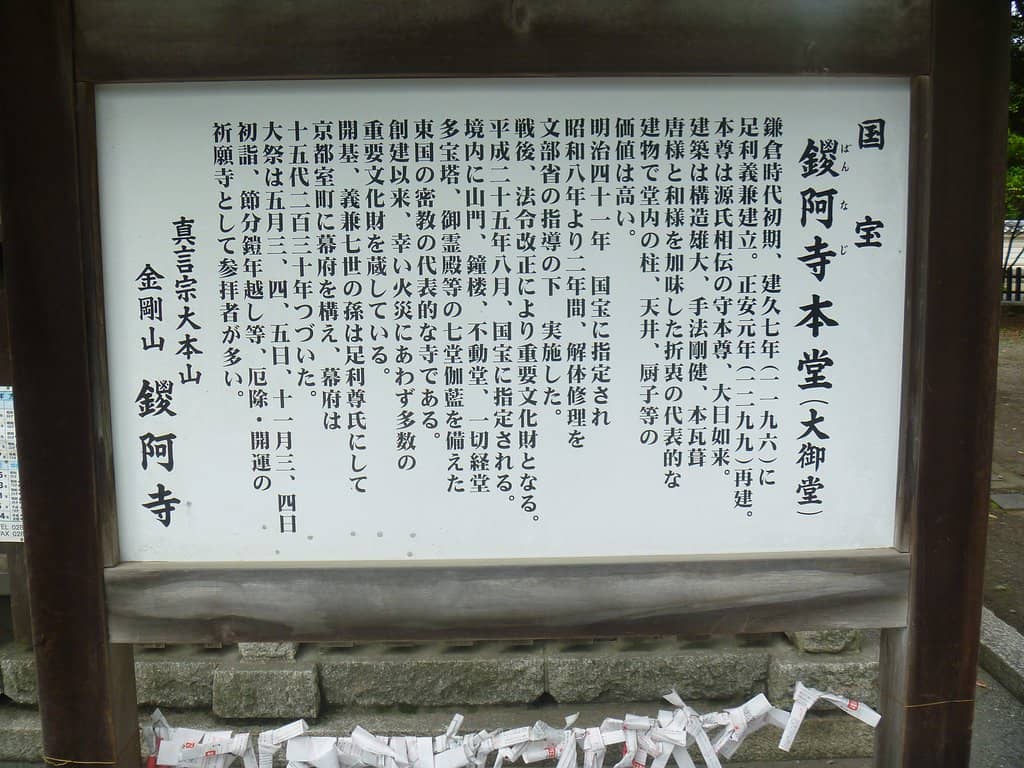 国宝
鑁阿寺本堂（大御堂）
ばんなじ
鎌倉時代初期、建久七年（一一九六）に
足利義兼建立。正安元年（一二九九）再建。
本尊は源氏相伝の守本尊、大日如来。
建築は構造雄大、手法剛健、本瓦葺
唐様と和様を加味した折衷の代表的な
建物で堂内の柱、天井、厨子等の
価値は高い。
明治四十一年　国宝に指定され
昭和八年より二年間、解体修理を
文部省の指導の下　実施した。
戦後、法令改正により重要文化財となる。
平成二十五年八月、国宝に指定される。
境内に山門、鐘楼、不動堂、一切経堂
多宝塔、御霊殿等の七堂伽藍を備えた
東国の密教の代表的な寺である。
創建以来、幸い火災にあわず多数の
重要文化財を蔵している。
開基、義兼七世の孫は足利尊氏にして
京都室町に幕府を構え、幕府は
十五代二百三十年つづいた。
大祭は五月三、四、五日、十一月三、四日
初詣、節分鎧年越し等、厄除・開運の
祈願寺として参拝者が多い。
真言宗大本山
金剛山　鑁阿寺